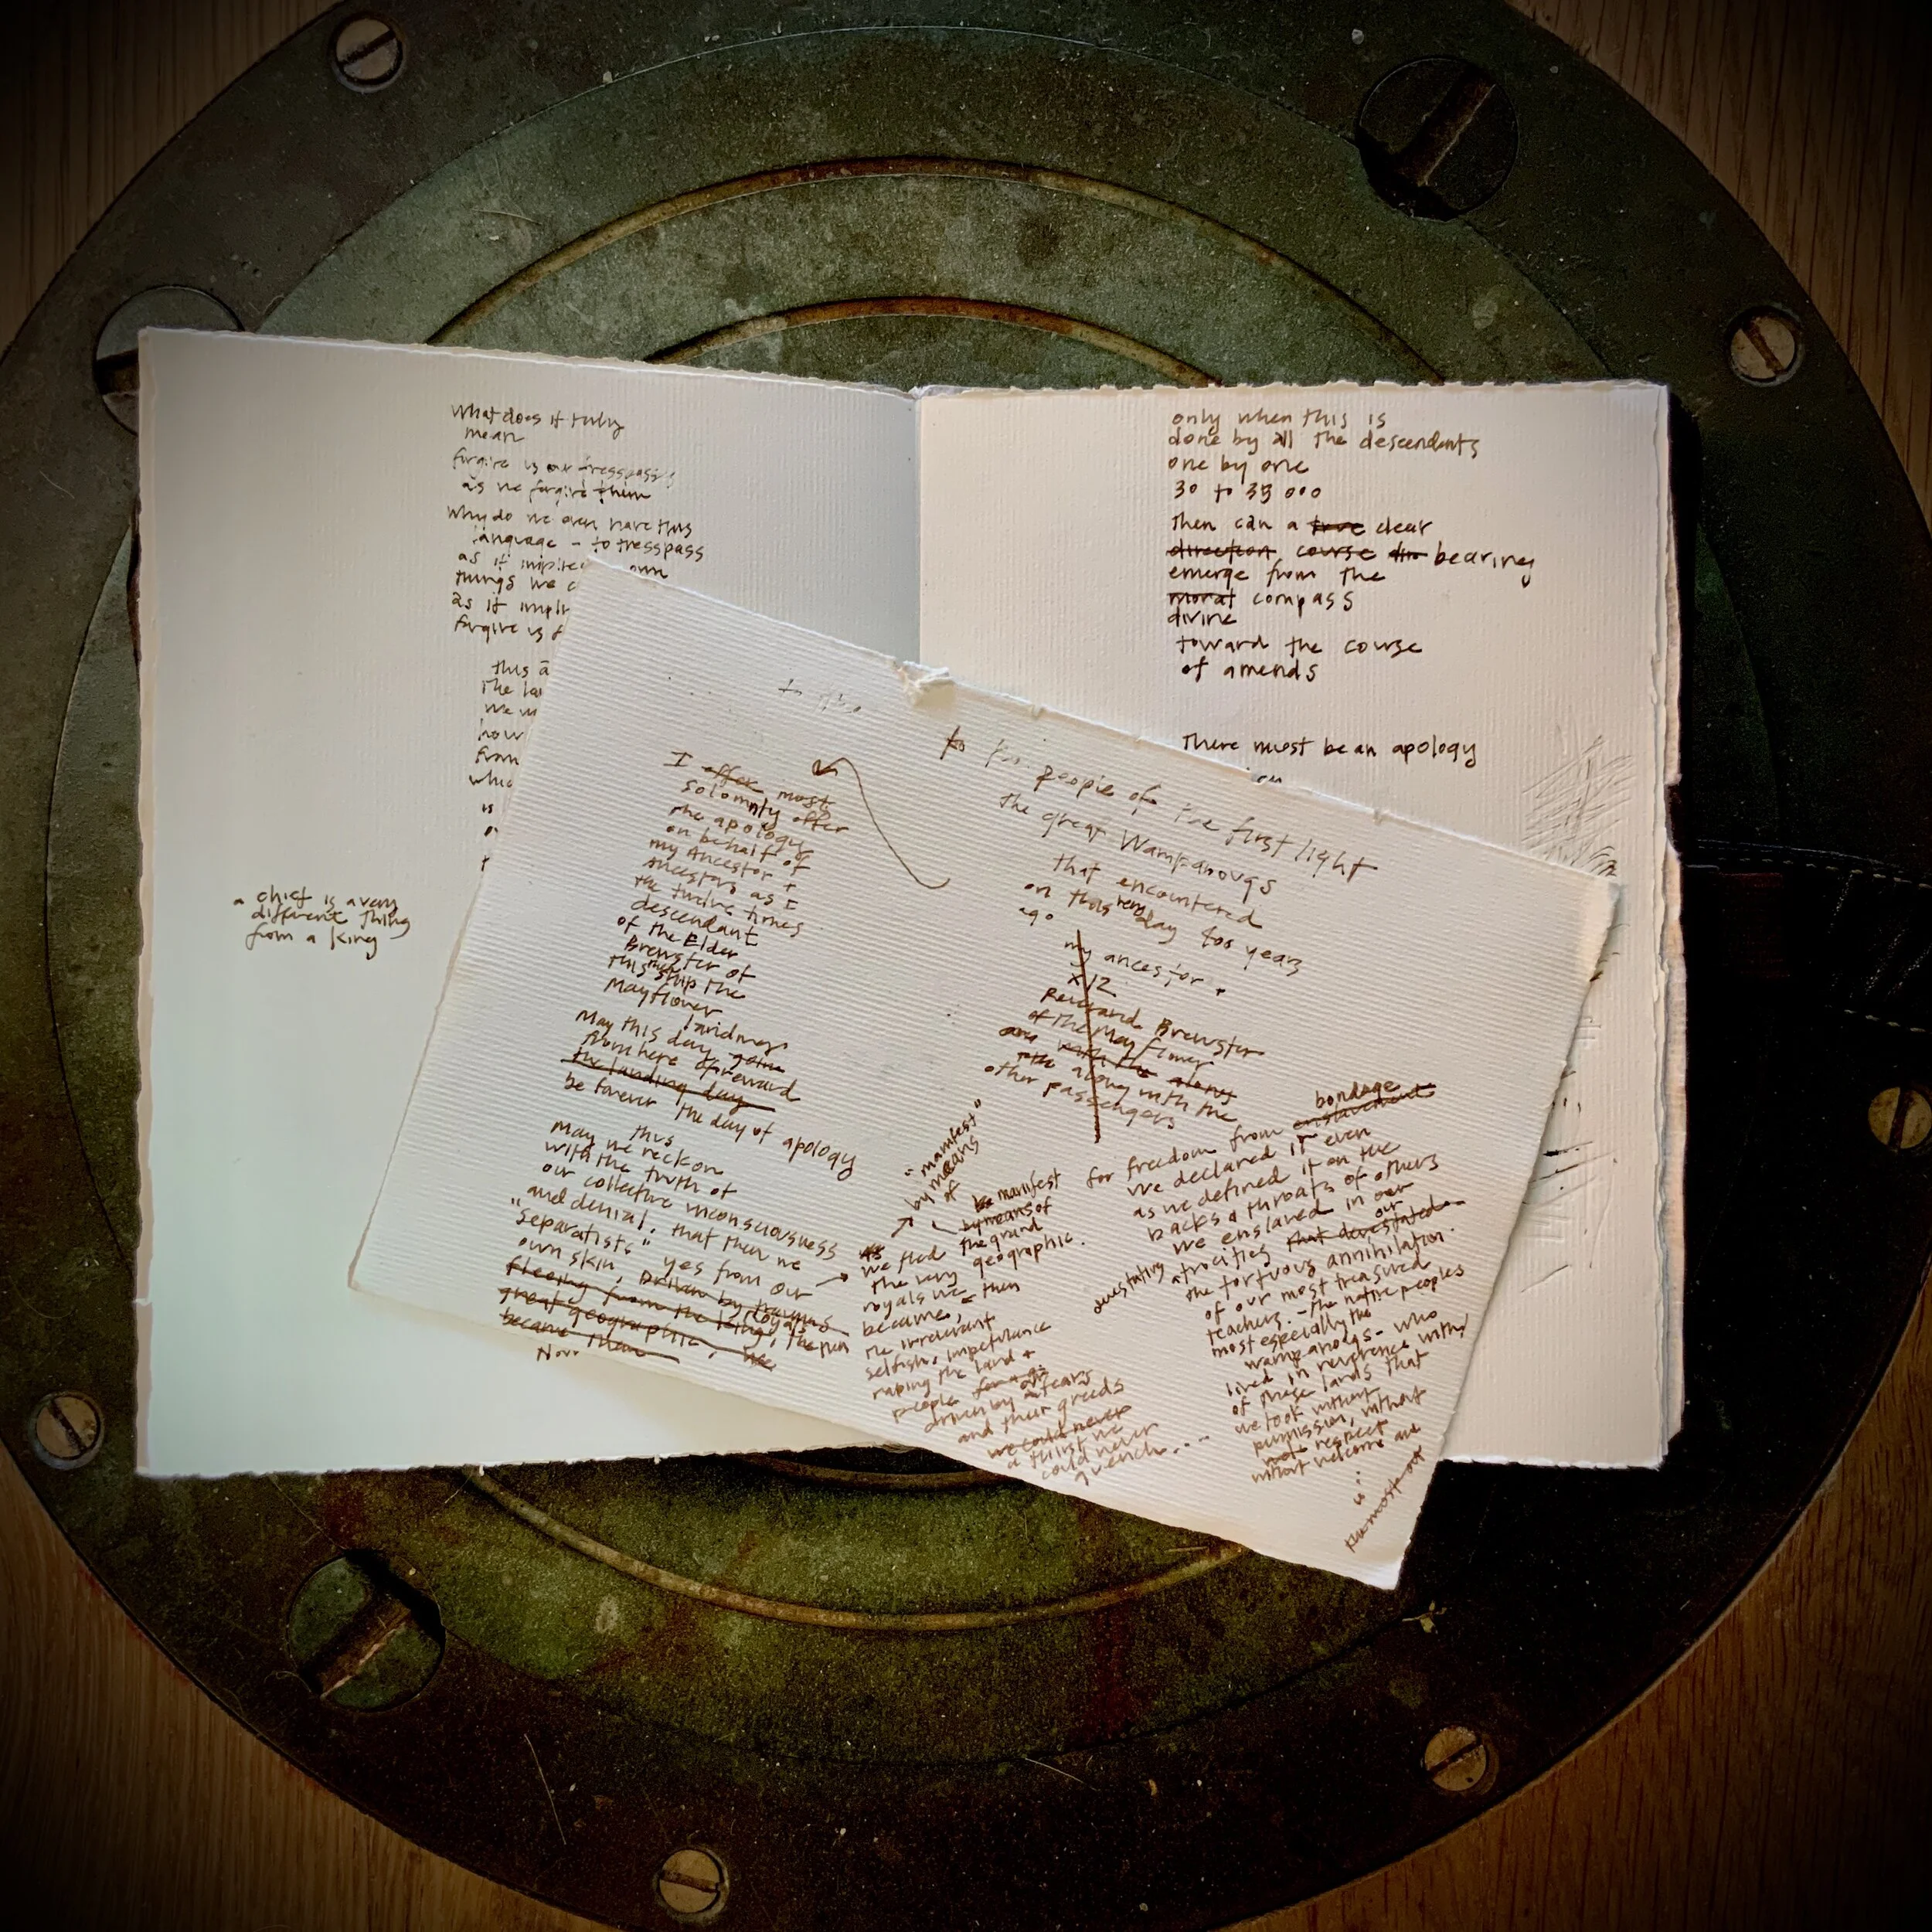 What does it truly
mean
forgive us our tresspasses
as we forgive them
Why do we even have this
language - to tresspass
as if own
things we
as if
forgive us
this
the
We
how
from
who
is
a chief is a very
different thing
from a king
only when this is
done by all the descendants
one by one
30 to 35 000
Then can a true clear
direction course bearing
emerge from the
moral compass
divine
toward the course
of amends
There must be an apology
I offer most
solomnly offer
the apology
on behalf of
my Ancestor +
Ancestors as I
the twelve times
descendant
of the Elder
Brewster of
this ship the
Mayflower
May this day landing
from here foreward
the landing day
be forever the day of apology
May this
we reckon
with the truth of
our collective inconsciousness
and denial. that then we
"separatists" yes from our
own skin, Driven by traumas
fleeing from the kings, the royals
great geographic, we
became them
Now
to the people of the first light
the great Wampanoags
that encountered
on this very day 400 years
ago
my ancestor +
x12
Reverand Brewster
of the Mayflower
and with the along
along with the
other passengers
"manifest"
by means
of
be manifest
by means of
the grand
geographic.
As
we fled
the very
royals we then
became,
the irreverant
selfish, impetulance
raping the land +
people for all
driven by fears
and their greeds
we could never
a thirst we
could never
quench....
for freedom from enslavement bondage
we declared it even
as we defined it on the
backs & throats of others
we enslaved in our
devastating atrocities that devestated our
the tortuous annihilation
of our most treasured
teachers. - the native peoples
most especially the
wampanoags - who
lived in reverence with
of these lands that
we took without
permission, without
respect
without welcome and